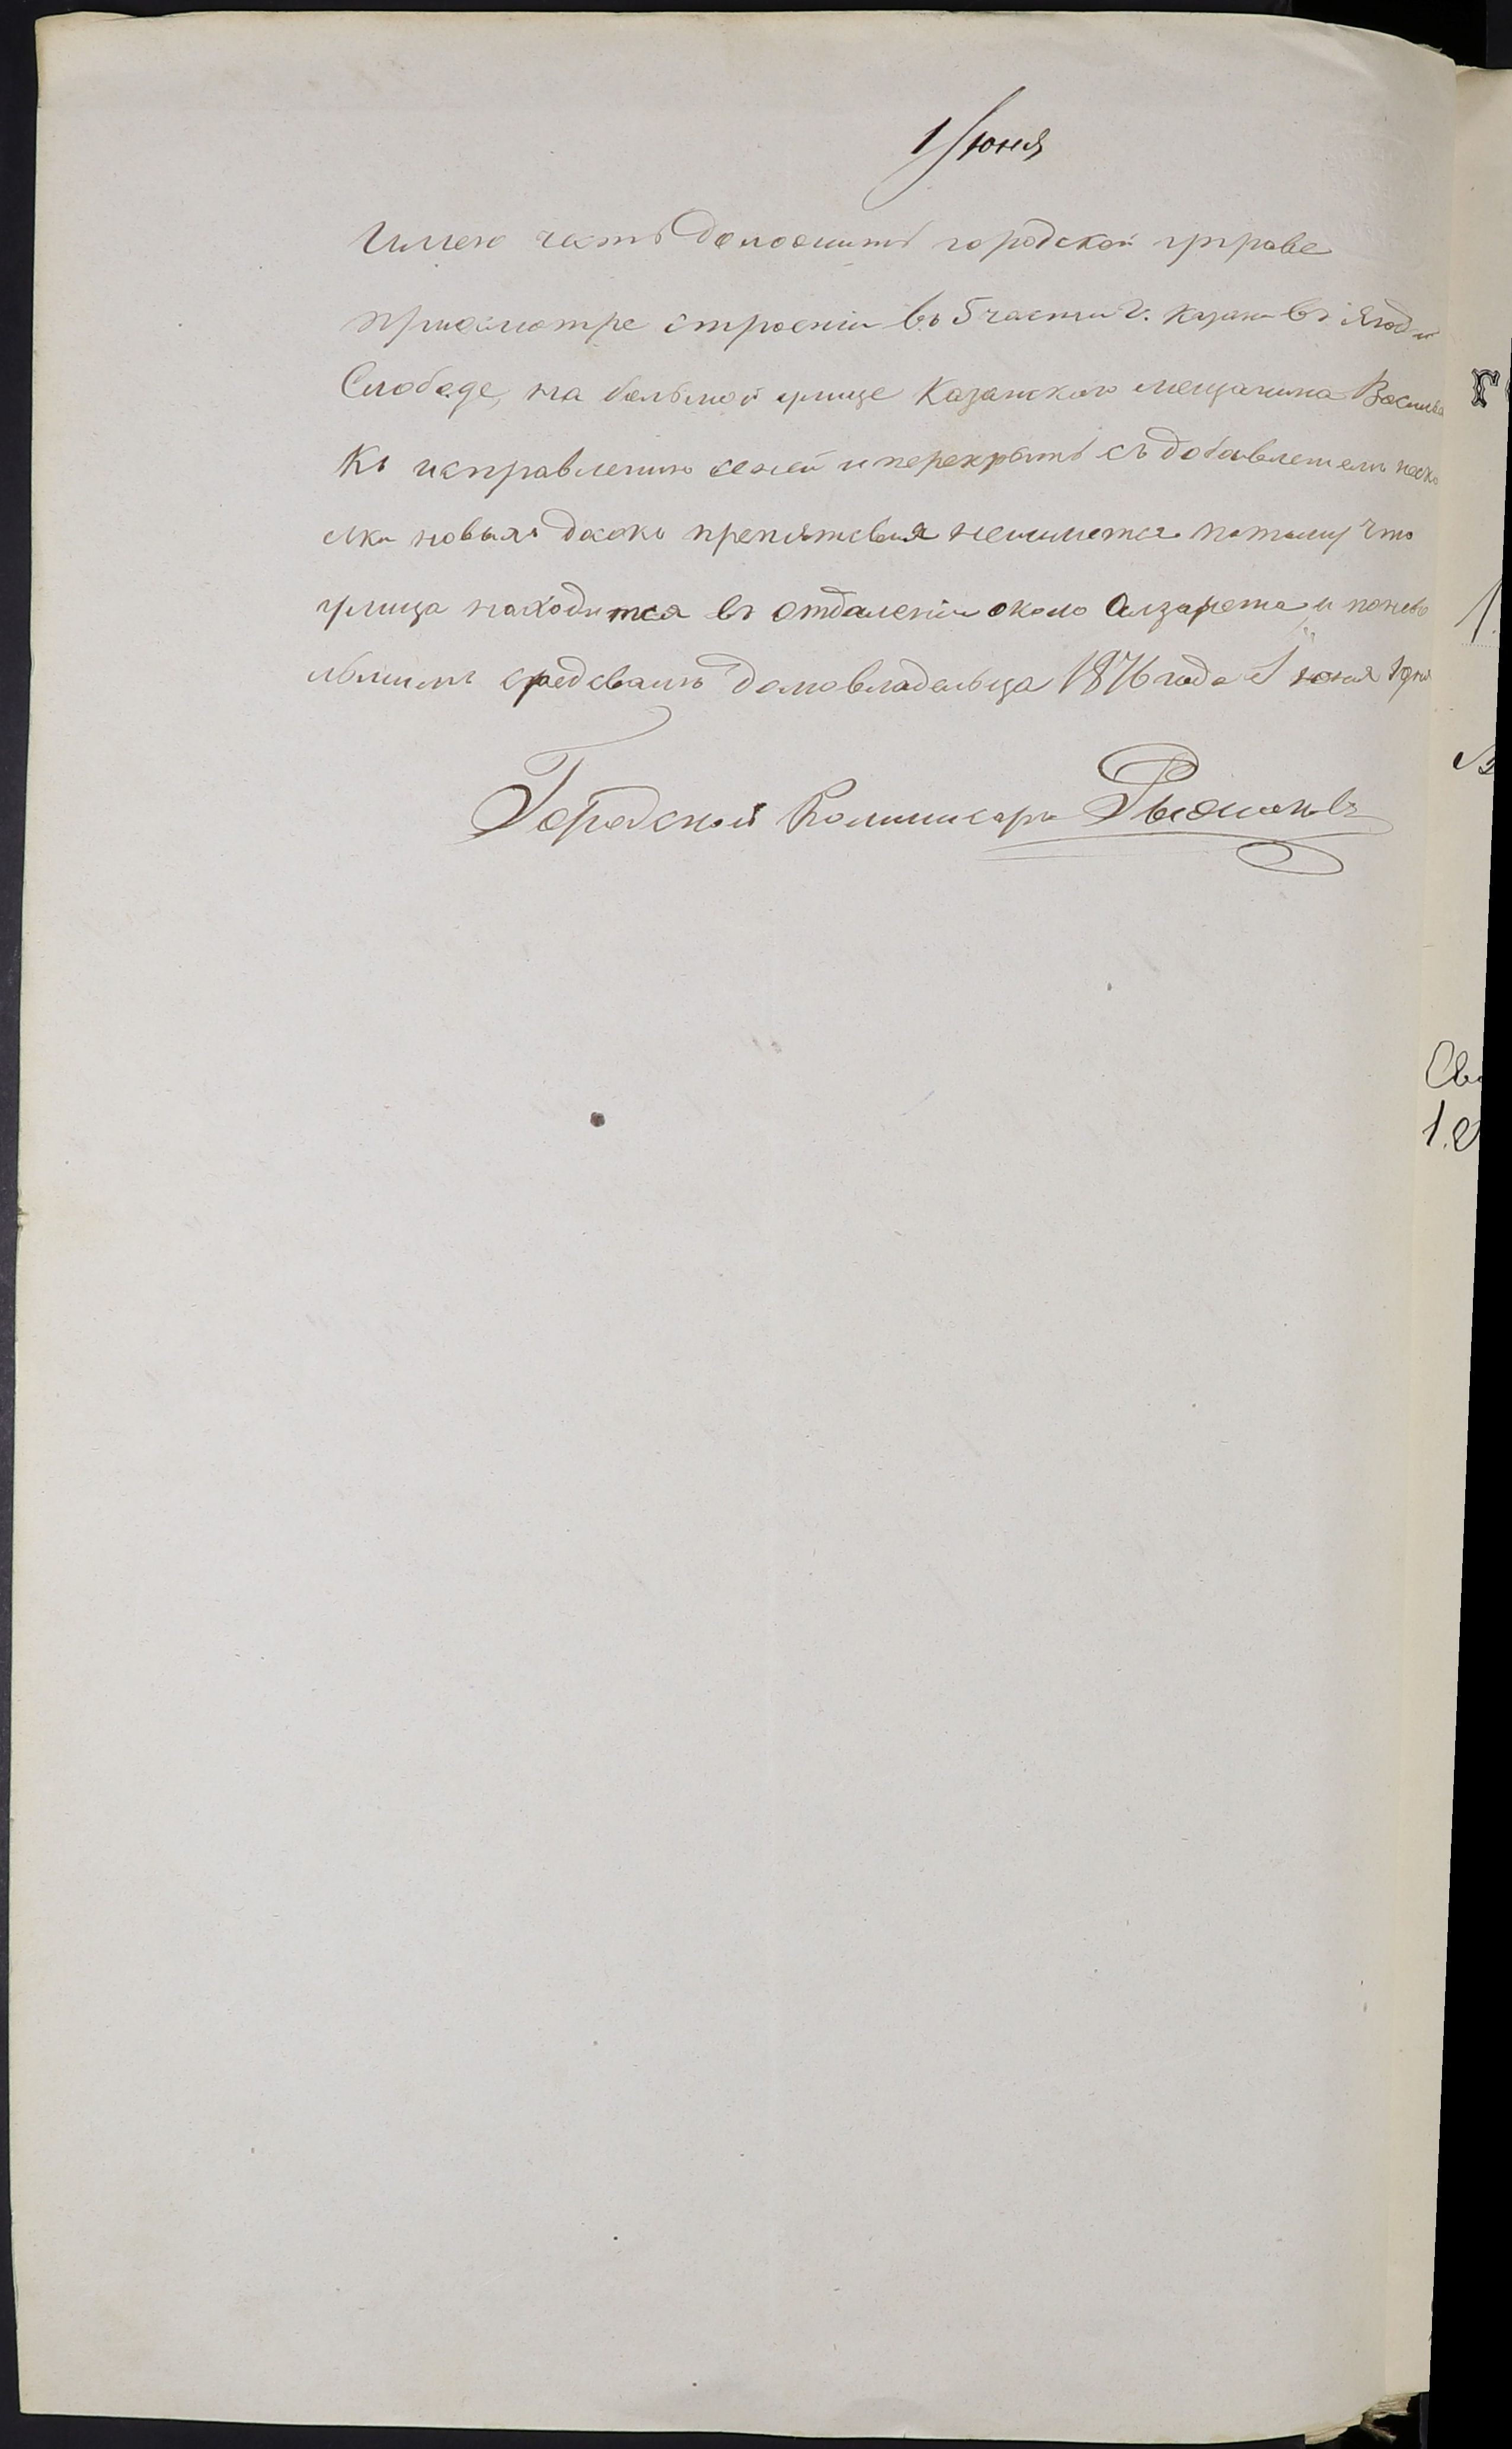 1 Июня
Имею честь доложить городской управе
приосмотре строении въ 5 части г. Казани въ Ягодной
Слободе, на большой улице Казанского мещанина Васильева
Къ исправлению сеней иперекрыть съ добавлениемъ неско
лко новыхъ досокъ препятсвия неимеется потому что
улица находится въ отдаленiи около Алзарета и понебо
льшимъ средсвамъ домовладельца 1876 года Июня 1 дня
Городской Коммисаръ